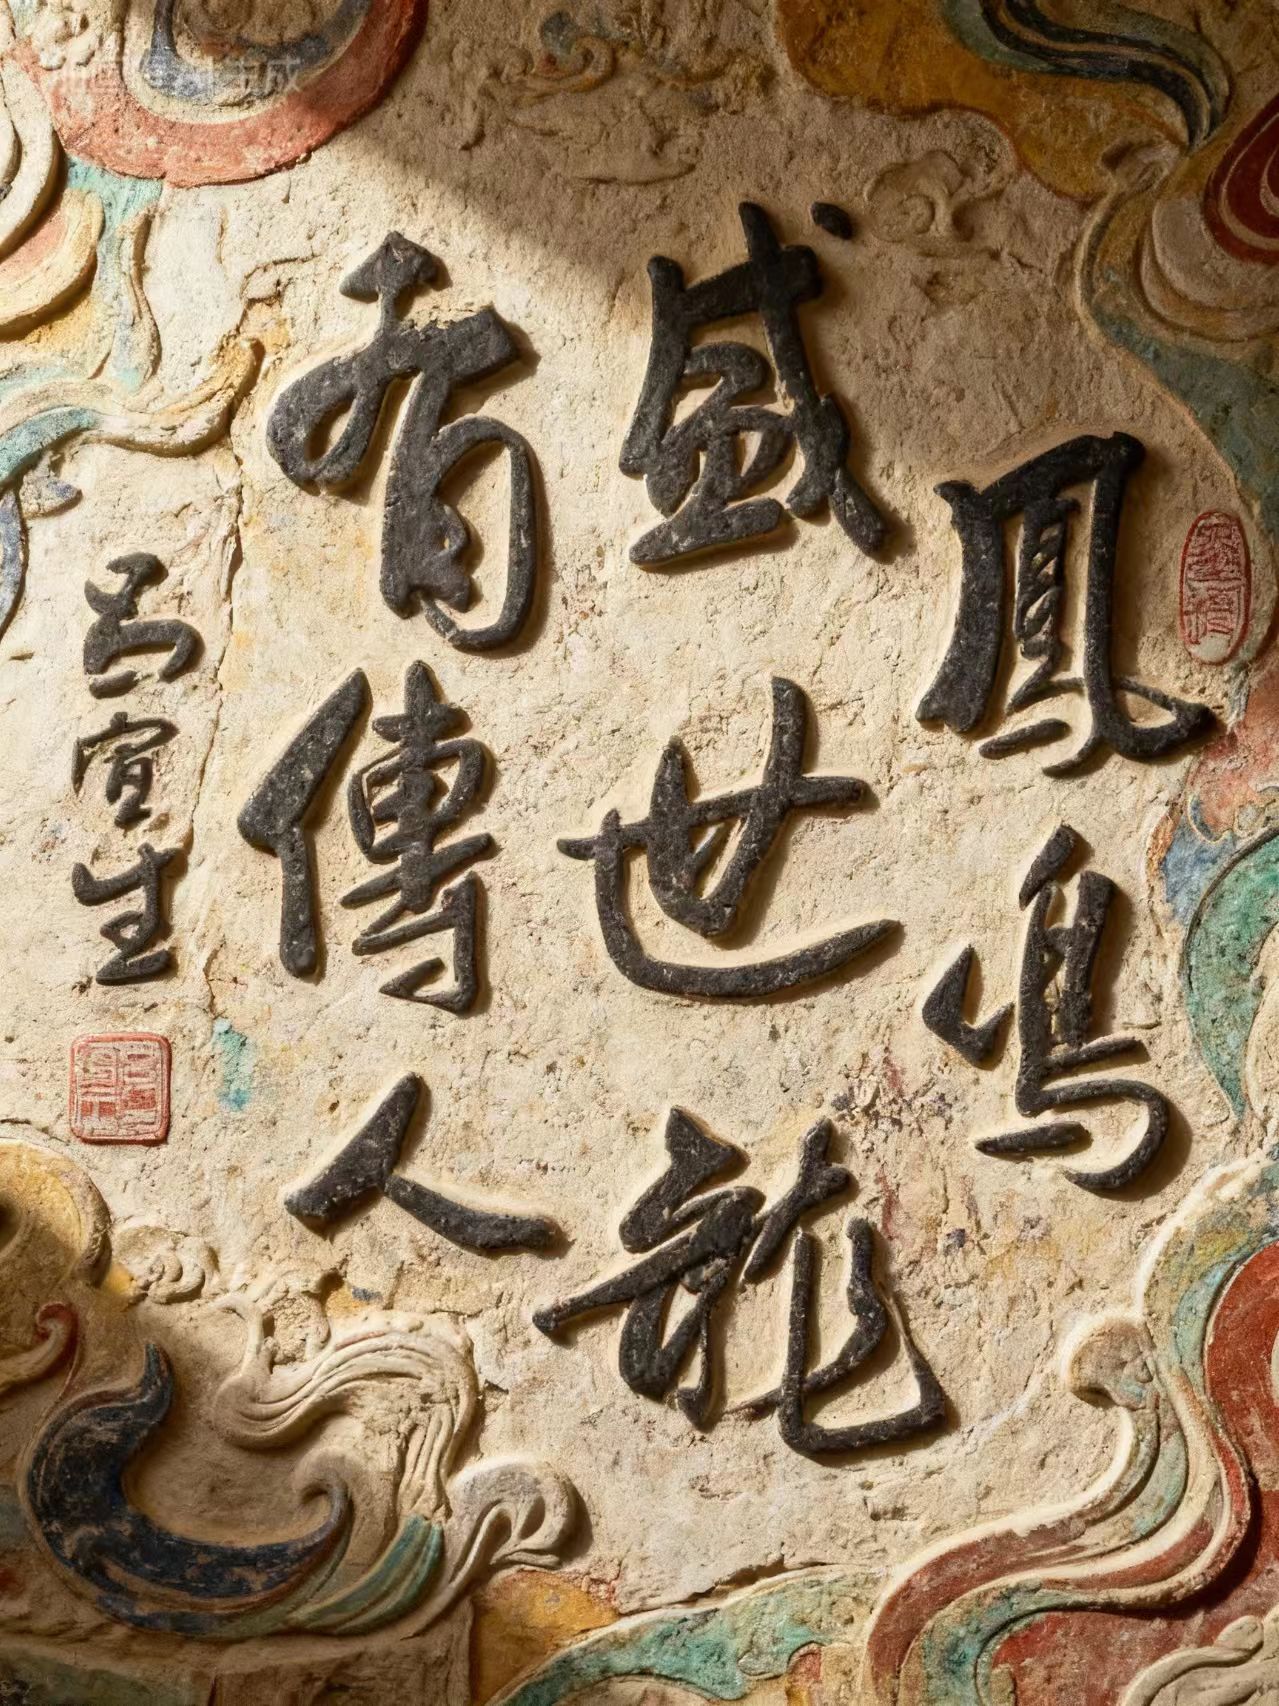 鳳鳴
盛世龍
有傳人
呂宜生